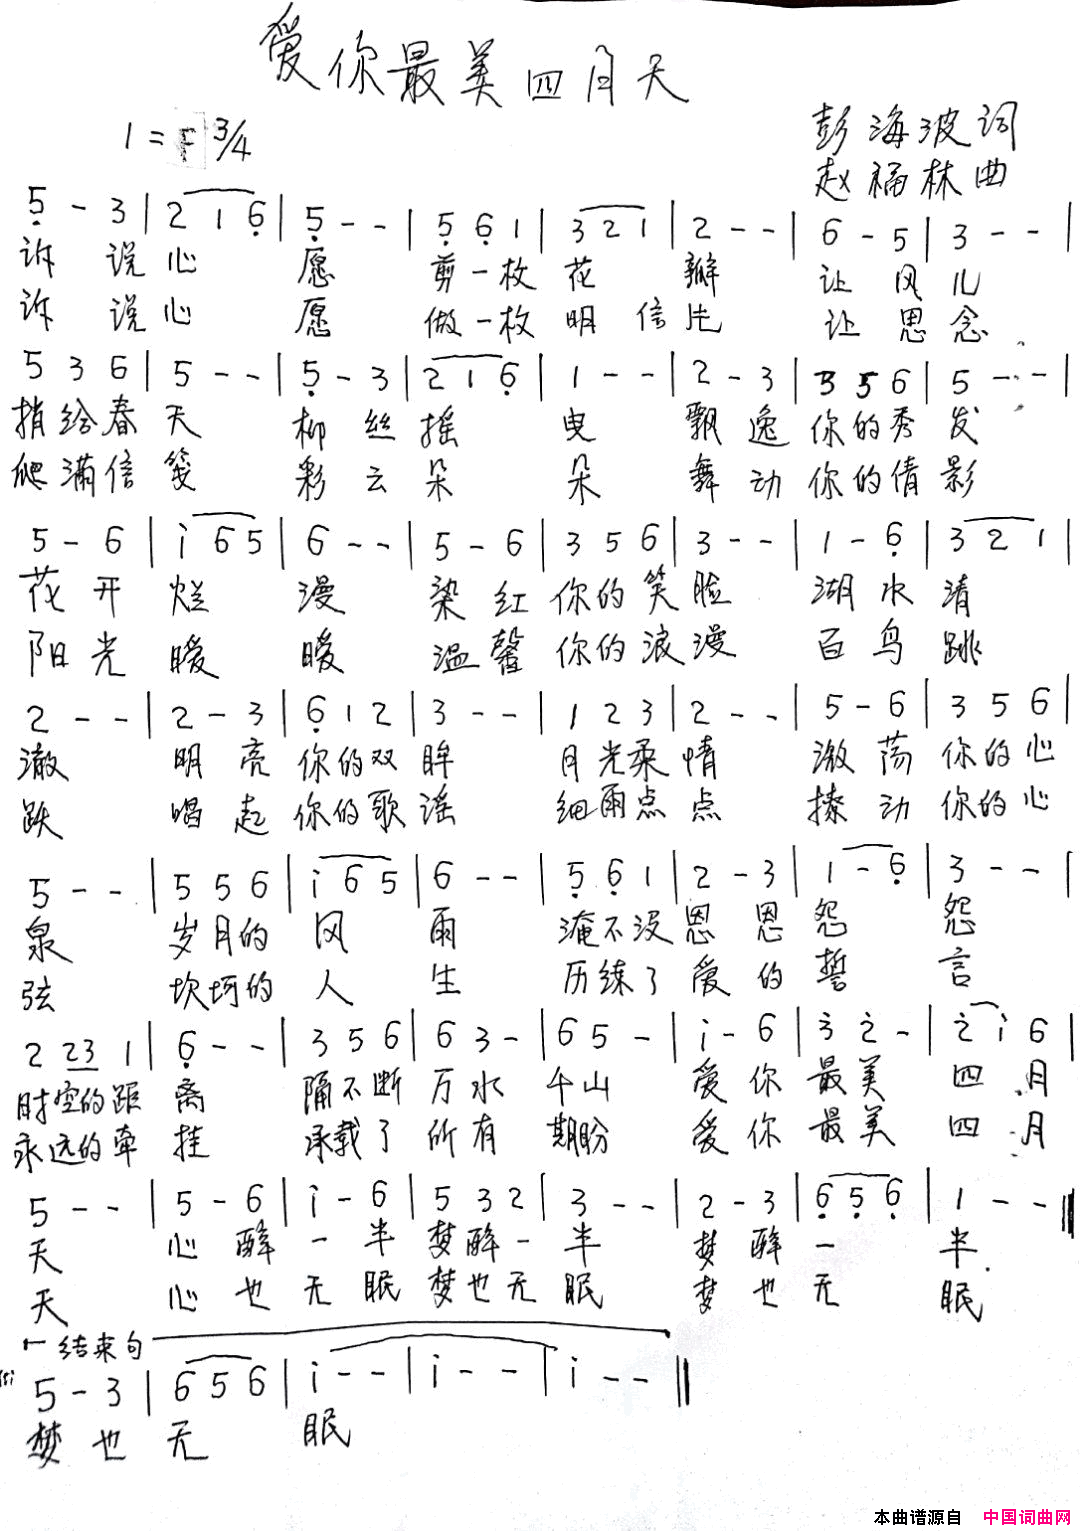 爱你最美四月天
1=F 3/4
彭海波词
赵福林曲
5 - 3 | 2 1 6 | 5 - - | 5 6 1 | 3 2 1 | 2 - - | 6 - 5 | 3 - - |
诉 说 心 愿 剪一枚 花 瓣 让 风 儿
诉 说 心 愿 做一枚 明 信 片 让 思 念
5 3 6 | 5 - - | 5 - 3 | 2 1 6 | 1 - - | 2 - 3 | 3 5 6 | 5 - - |
捎给春 天 柳 丝 摇 曳 飘 逸 你的秀 发
爬满信 笺 彩 云 朵 朵 舞 动 你的倩 影
5 - 6 | i 6 5 | 6 - - | 5 - 6 | 3 5 6 | 3 - - | 1 - 6 | 3 2 1 |
花 开 烂 漫 染 红 你的笑 脸 湖 水 清
阳 光 暖 暖 温 馨 你的浪 漫 百 鸟 跳
2 - - | 2 - 3 | 6 1 2 | 3 - - | 1 2 3 | 2 - - | 5 - 6 | 3 5 6 |
澈 明 亮 你的双 眸 月光柔 情 激 荡 你的心
跃 唱 起 你的歌 谣 细雨点 点 撩 动 你的心
5 - - | 5 5 6 | i 6 5 | 6 - - | 5 6 1 | 2 - 3 | 1 - 6 | 3 - - |
泉 岁月的 风 雨 淹不没 恩 恩 怨 怨
弦 坎坷的 人 生 历练了 爱 的 誓 言
2 23 1 | 6 - - | 3 5 6 | 6 3 - | 6 5 - | i - 6 | 3 2 - | 2 i 6 |
时空的距 离 隔不断 万 水 千山 爱 你 最 美 四 月
永远的牵 挂 承载了 所 有 期盼 爱 你 最 美 四 月
5 - - | 5 - 6 | i - 6 | 5 3 2 | 3 - - | 2 - 3 | 6 5 6 | 1 - - ‖
天 心 醉 一 半 梦醉一 半 梦 醉 一 半
天 心 也 无 眠 梦也无 眠 梦 也 无 眠
结束句
5 - 3 | 6 5 6 | i - - | i - - | i - - ‖
梦 也 无 眠
本曲谱源自 中国词曲网